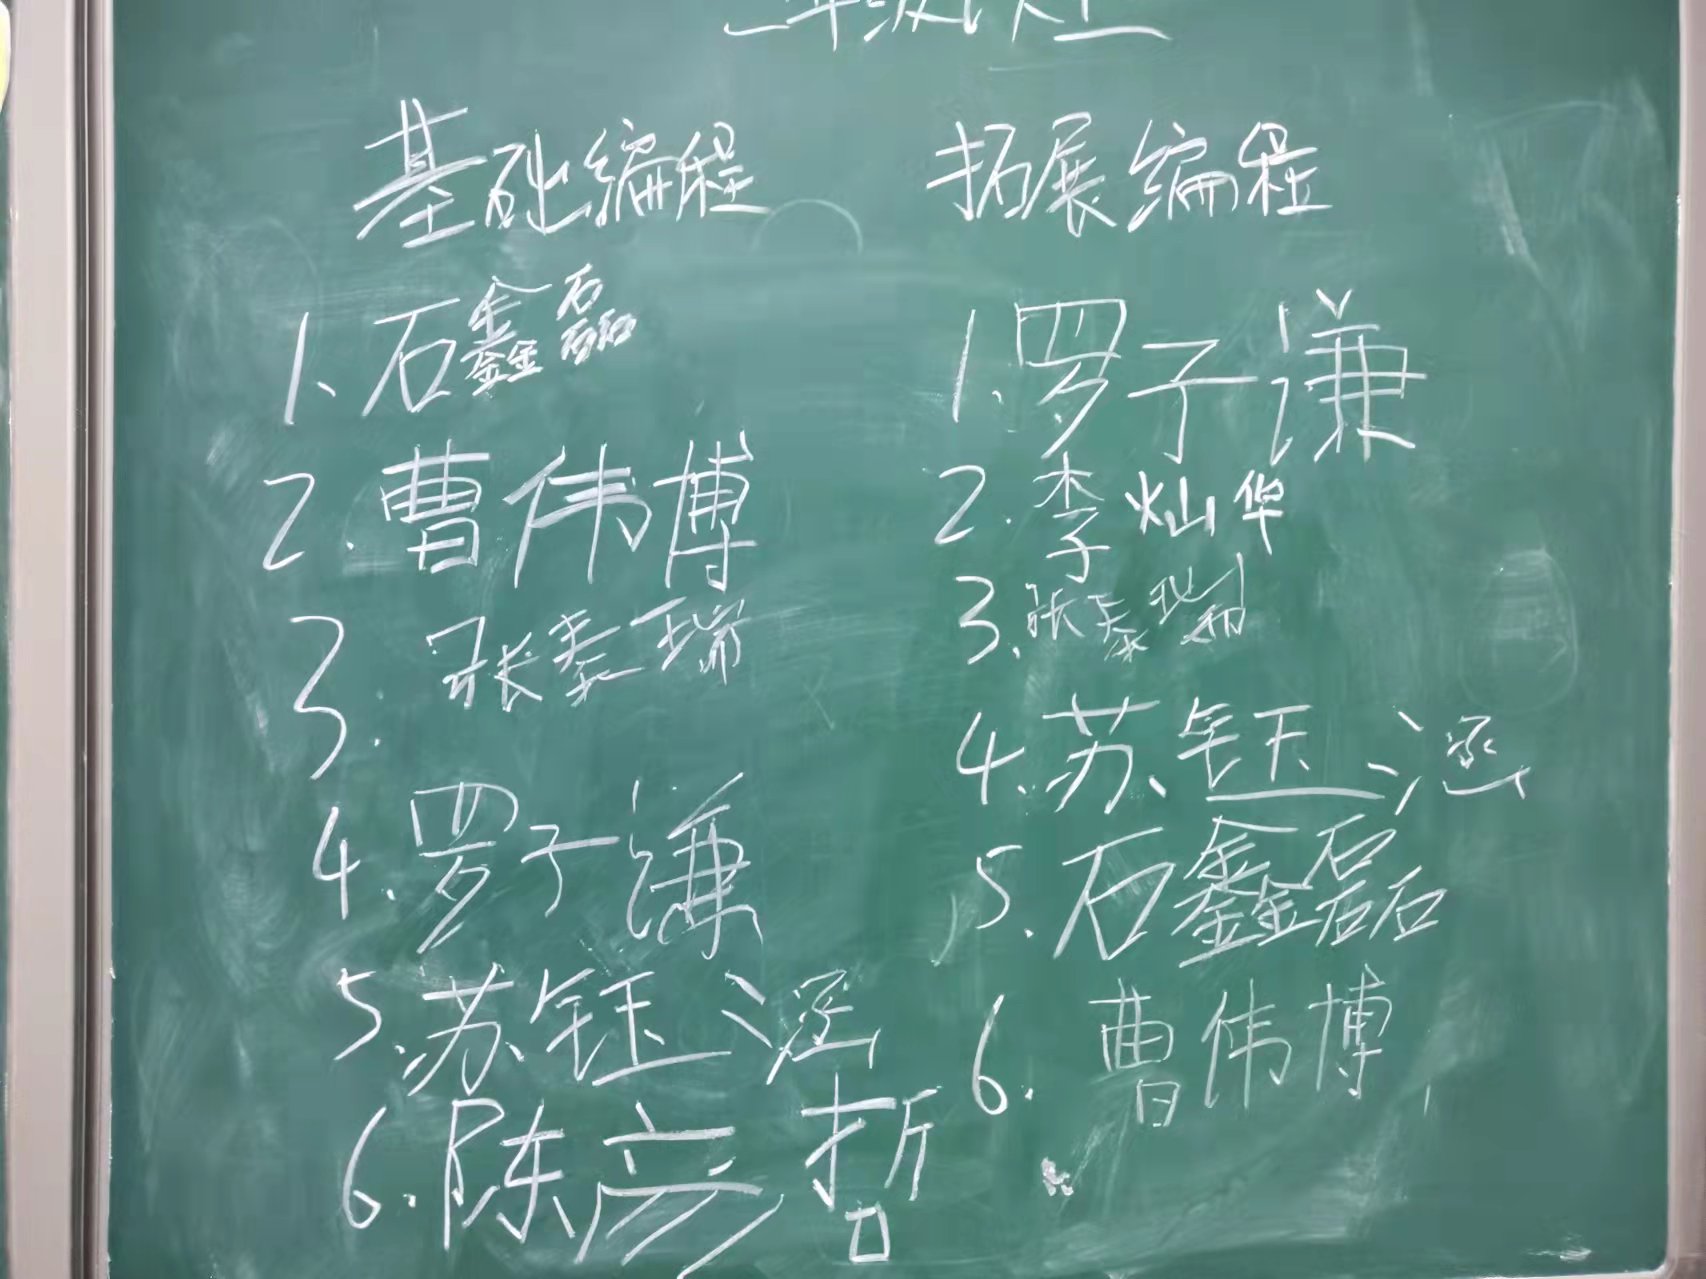 基础编程
1、石鑫磊
2.曹伟博
3.张泰瑞
4.罗子谦
5.苏钰涵
6.陈彦哲
拓展编程
1.罗子谦
2.李灿华
3.张泰瑞
4.苏钰涵
5.石鑫磊
6.曹伟博